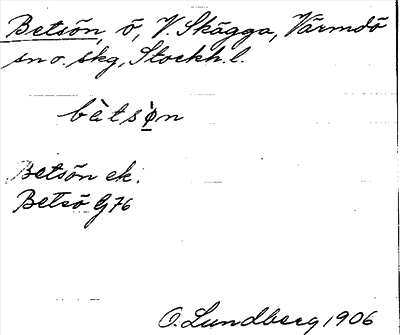 Betsön, ö, V. Skägga, Värmdö
sn o. skg, Stockh. l.
bè̀tsø̀n
Betsön ek.
Betsö G 76
O. Lundberg 1906